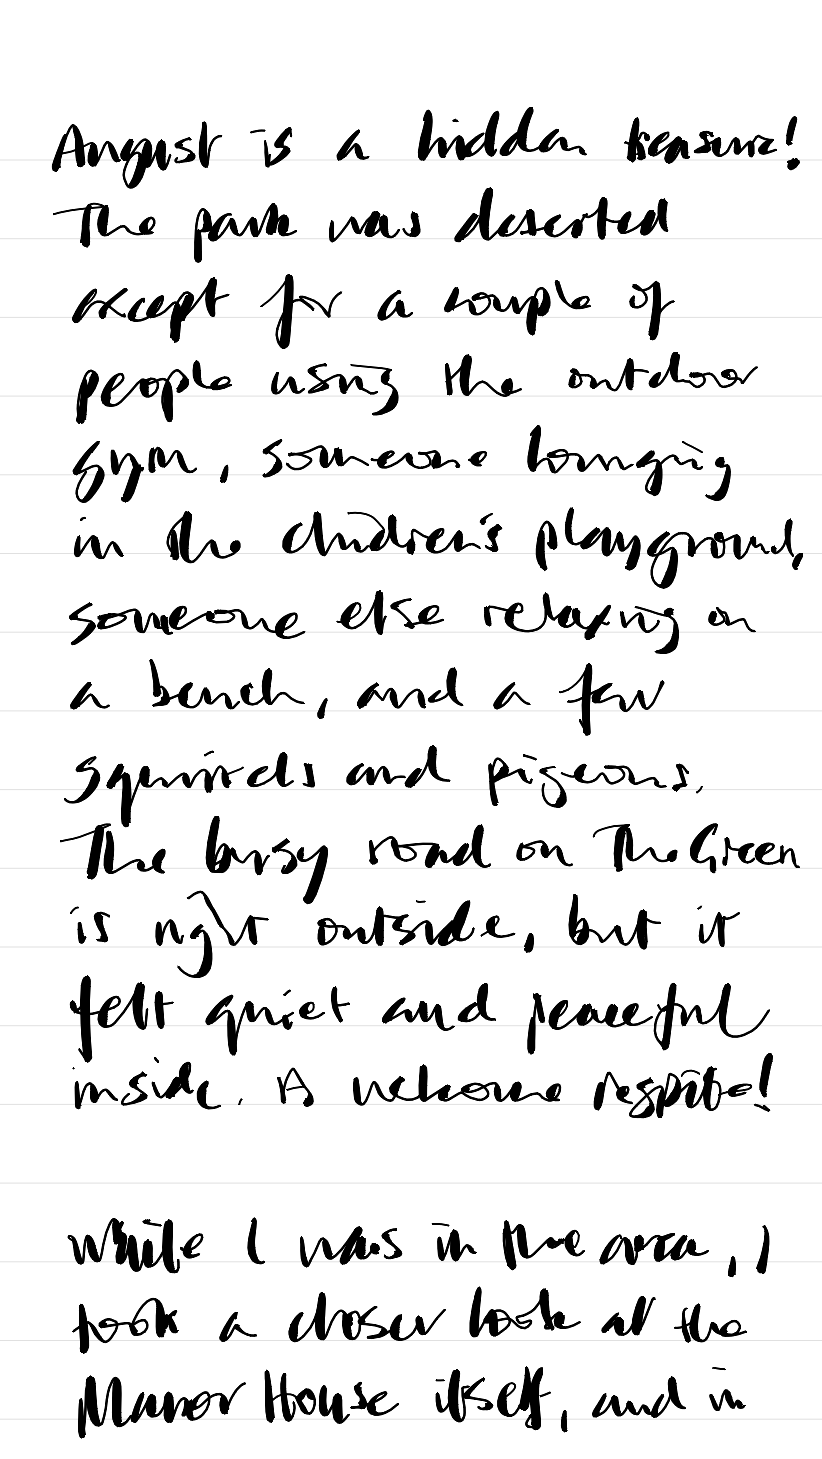 August is a hidden treasure!
The park was deserted
except for a couple of
people using the outdoor
gym, someone lounging
in the children's playground,
someone else relaxing on
a bench, and a few
squirrels and pigeons.
The busy road on The Green
is right outside, but it
felt quiet and peaceful
inside. A welcome respite!
While I was in the area, I
took a closer look at the
Manor House itself, and in